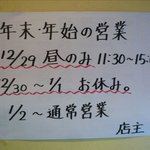 年末・年始の営業
12/29 昼のみ 11:30～15:
12/30～1/1 お休み。
1/2～通常営業
店主